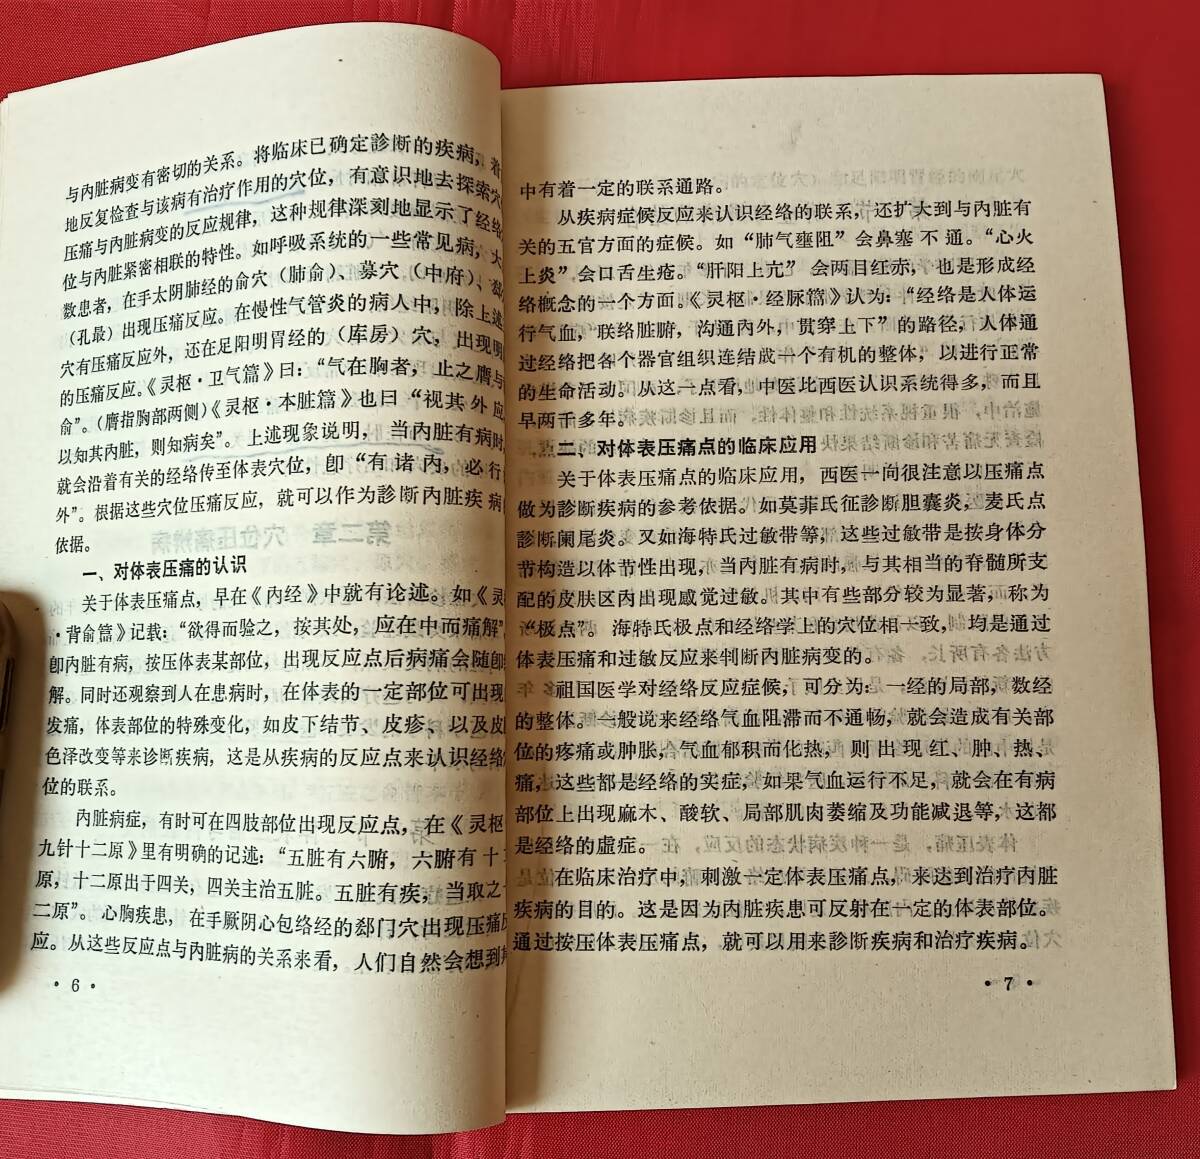 与内脏病变有密切的关系。将临床已确定診断的疾病，着
地反复检查与该病有治疗作用的穴位，有意识地去探索穴
压痛与内脏病变的反应规律，这种规律深刻地显示了经络
位与内脏紧密相联的特性。如呼吸系统的一些常见病，大
数患者，在手太阴肺经的俞穴（肺俞）、募穴（中府）、郄
（孔最）出现压痛反应。在慢性气管炎的病人中，除上述
穴有压痛反应外，还在足阳明胃经的（库房）穴，出现明
的压痛反应。《灵枢·卫气篇》曰：“气在胸者，止之膺与
俞”。（膺指胸部两侧）《灵枢·本脏篇》也曰“视其外应
以知其内脏，则知病矣”。上述现象说明，当内脏有病时
就会沿着有关的经络传至体表穴位，卽“有诸内，必行
外”。根据这些穴位压痛反应，就可以作为診断内脏疾病
依据。
一、对体表压痛的认识
关于体表压痛点，早在《内经》中就有论述。如《灵
·背俞篇》记载：“欲得而验之，按其处，应在中而痛解”
卽内脏有病，按压体表某部位，出现反应点后病痛会随卽
解。同时还观察到人在患病时，在体表的一定部位可出现
发痛，体表部位的特殊变化，如皮下结节、皮疹、以及皮
色泽改变等来诊断疾病，这是从疾病的反应点来认识经络
位的联系。
内脏病症，有时可在四肢部位出现反应点，在《灵枢
九针十二原》里有明确的记述：“五脏有六腑，六腑有十
原，十二原出于四关，四关主治五脏。五脏有疾，当取之
二原”。心胸疾患，在手厥阴心包络经的郄门穴出现压痛反
应。从这些反应点与内脏病的关系来看，人们自然会想到
·6·
中有着一定的联系通路。
从疾病症候反应来认识经络的联系，还扩大到与内脏有
关的五官方面的症候。如“肺气壅阻”会鼻塞不通。“心火
上炎”会口舌生疮。“肝阳上亢”会两目红赤，也是形成经
络概念的一个方面。《灵枢·经脉篇》认为：“经络是人体运
行气血，“联络脏腑，沟通内外，贯穿上下”的路径，人体通
过经络把各个器官组织连结成一个有机的整体，以进行正常
的生命活动。从这一点看，中医比西医认识系统得多，而且
早两千多年。
二、对体表压痛点的临床应用
关于体表压痛点的临床应用，西医一向很注意以压痛点
做为診断疾病的参考依据。如莫菲氏征診断胆囊炎，麦氏点
診断阑尾炎。又如海特氏过敏带等，这些过敏带是按身体分
节构造以体节性出现，当内脏有病时，与其相当的脊髄所支
配的皮肤区内出现感觉过敏。其中有些部分较为显著，称为
“极点”。海特氏极点和经络学上的穴位相一致，均是通过
体表压痛和过敏反应来判断内脏病变的。
祖国医学对经络反应症候，可分为：一经的局部，数经
的整体。一般说来经络气血阻滞而不通畅，就会造成有关部
位的疼痛或肿胀，合气血郁积而化热，则出现红、肿、热、
痛，这些都是经络的实症，如果气血运行不足，就会在有病
部位上出现麻木、酸软、局部肌肉萎缩及功能减退等，这都
是经络的虚症。
在临床治疗中，刺激一定体表压痛点，来达到治疗内脏
疾病的目的。这是因为内脏疾患可反射在一定的体表部位。
通过按压体表压痛点，就可以用来診断疾病和治疗疾病。
·7·